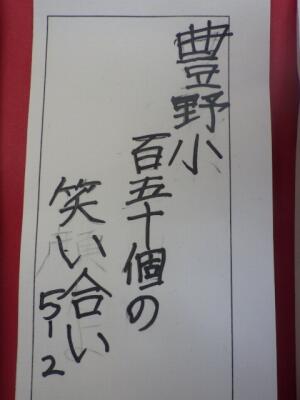 豊野小
百五十個の
笑い合い
5-2